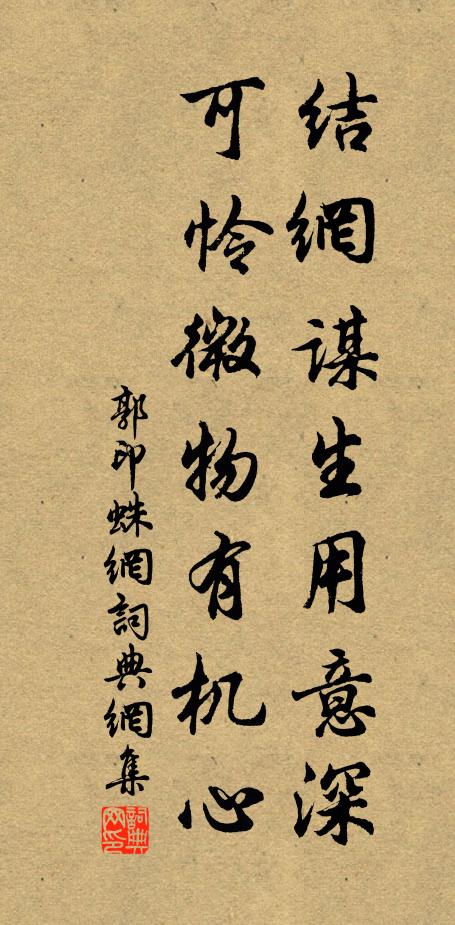 結網謀生用意深
可怜微物有机心
郭印蛛網詞典網集
詞典网印